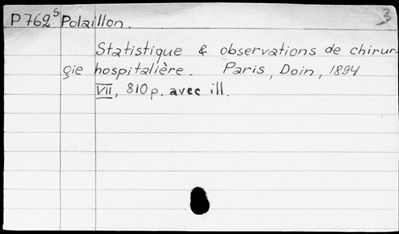 P762⁵ Polaillon. 3
Statistique & observations de chirur-
gie hospitalière. Paris, Doin, 1894
VII, 810 p. avec ill.